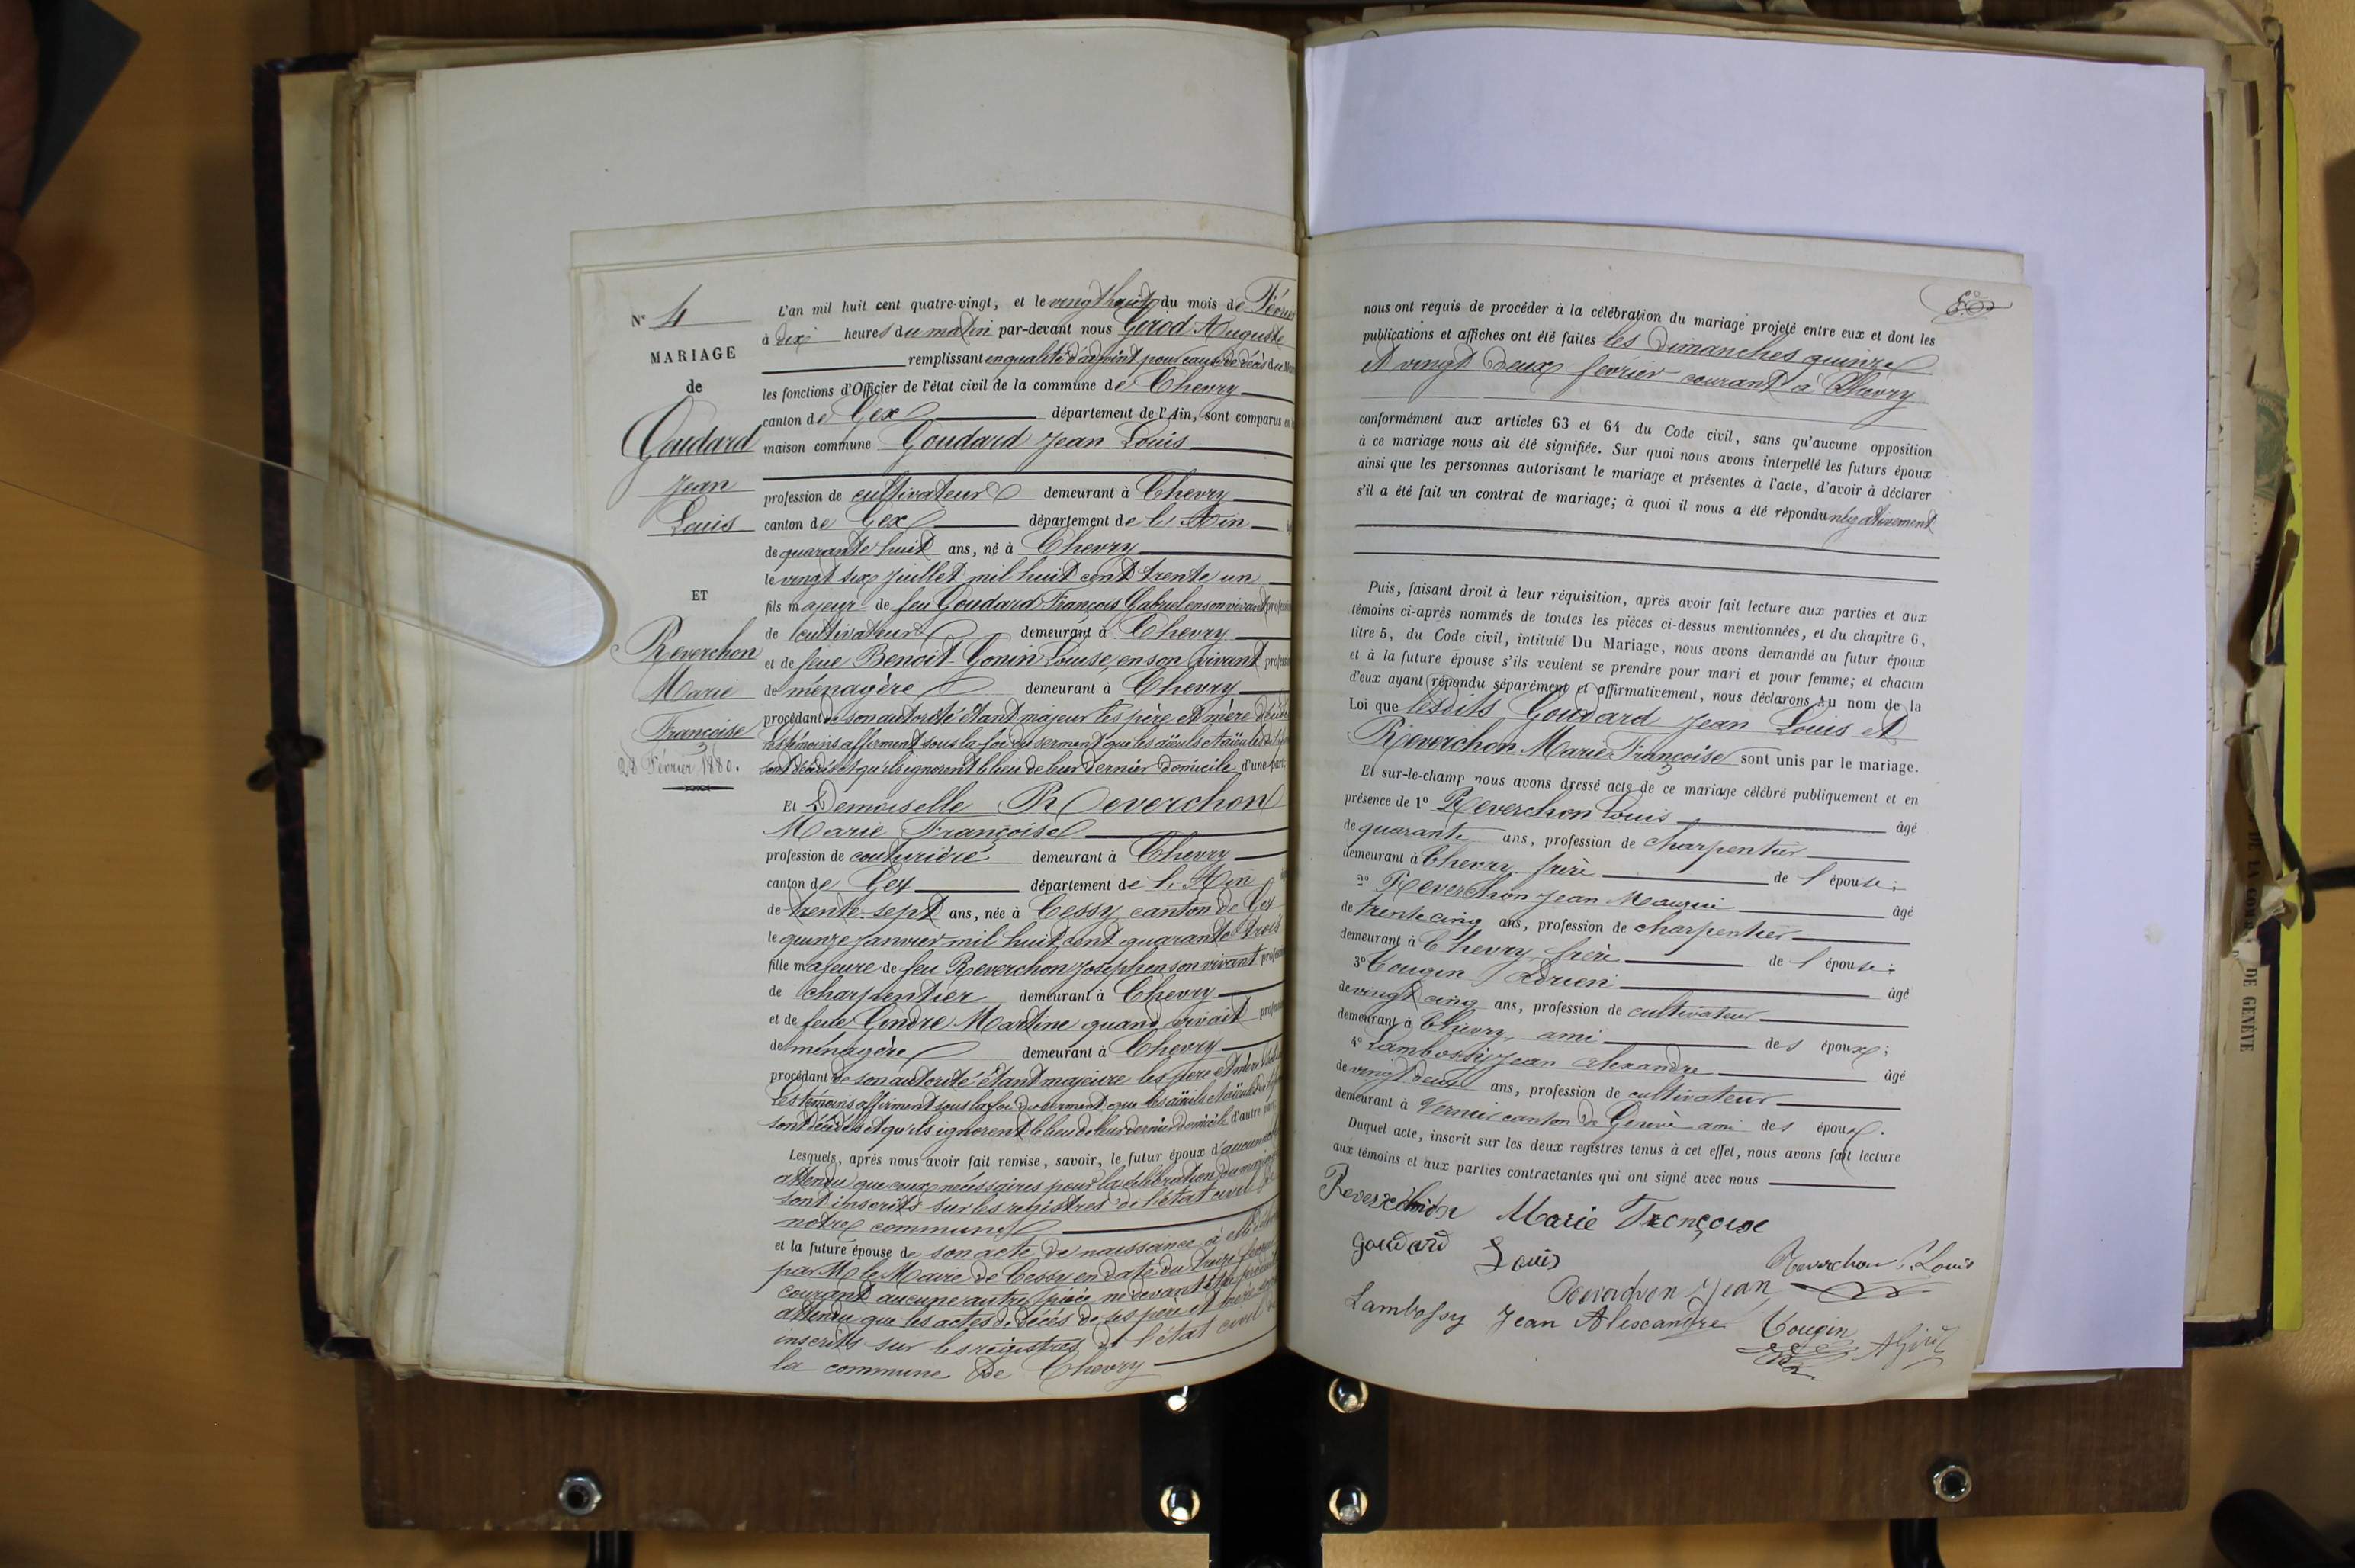 N° 4
MARIAGE
de
Goudard
Jean
Louis
ET
Reverchon
Marie
Françoise
28 Février 1880.
L'an mil huit cent quatre-vingt, et le vingt huit du mois de Février
à dix heures du matin par-devant nous Girod Auguste
remplissant en qualité d'adjoint pour cause de décès du
les fonctions d'Officier de l'état civil de la commune de Chevry
canton de Gex département de l'Ain, sont comparus en
maison commune Goudard Jean Louis
profession de cultivateur demeurant à Chevry
canton de Gex département de l'Ain
de quarante huit ans, né à Chevry
le vingt six Juillet mil huit cent trente un
fils majeur de feu Goudard François Gabriel en son vivant
de cultivateur demeurant à Chevry
et de feue Benoit-Gonin Louise, en son vivant
de ménagère demeurant à Chevry
procédant de son autorité étant majeur les père et mère
les témoins affirment sous la foi du serment que les aïeuls et aïeules
sont décédés et qu'ils ignorent le lieu de leur dernier domicile d'une part,
Et Demoiselle Reverchon
Marie Françoise
profession de couturière demeurant à Chevry
canton de Gex département de l'Ain
de trente-sept ans, née à Cessy canton de Gex
le quinze janvier mil huit cent quarante trois
fille majeure de feu Reverchon Joseph en son vivant
de charpentier demeurant à Chevry
et de feue Gindre Martine quand vivait
de ménagère demeurant à Chevry
procédant de son autorité étant majeure les père et mère
Les témoins affirment sous la foi du serment que les aïeuls et aïeules
sont décédés et qu'ils ignorent le lieu de leur dernier domicile d'autre part
Lesquels, après nous avoir fait remise, savoir, le futur époux d'aucun
attendu que ceux nécessaires pour la célébration du mariage
sont inscrits sur les registres de l'état civil de
notre commune
et la future épouse de son acte de naissance à elle
par M le Maire de Cessy en date du treize février
courant aucune autre pièce ne devant être
attendu que les actes de décès de ses père et mère sont
inscrits sur les registres de l'état civil de
la commune de Chevry
nous ont requis de procéder à la célébration du mariage projeté entre eux et dont les
publications et affiches ont été faites les dimanches quinze
et vingt deux février courant à Chevry
conformément aux articles 63 et 64 du Code civil, sans qu'aucune opposition
à ce mariage nous ait été signifiée. Sur quoi nous avons interpellé les futurs époux
ainsi que les personnes autorisant le mariage et présentes à l'acte, d'avoir à déclarer
s'il a été fait un contrat de mariage; à quoi il nous a été répondu négativement
Puis, faisant droit à leur réquisition, après avoir fait lecture aux parties et aux
témoins ci-après nommés de toutes les pièces ci-dessus mentionnées, et du chapitre 6,
titre 5, du Code civil, intitulé Du Mariage, nous avons demandé au futur époux
et à la future épouse s'ils veulent se prendre pour mari et pour femme; et chacun
d'eux ayant répondu séparément et affirmativement, nous déclarons Au nom de la
Loi que lesdits Goudard Jean Louis et
Reverchon Marie Françoise sont unis par le mariage.
Et sur-le-champ nous avons dressé acte de ce mariage célébré publiquement et en
présence de 1° Reverchon Louis âgé
de quarante ans, profession de charpentier
demeurant à Chevry, frère de l'épouse;
2° Reverchon Jean Maurice âgé
de trente cinq ans, profession de charpentier
demeurant à Chevry, frère de l'épouse;
3° Cougin Adrien âgé
de vingt cinq ans, profession de cultivateur
demeurant à Chevry, ami des époux;
4° Lambossy Jean Alexandre âgé
de vingt deux ans, profession de cultivateur
demeurant à Vernier canton de Genève ami des époux.
Duquel acte, inscrit sur les deux registres tenus à cet effet, nous avons fait lecture
aux témoins et aux parties contractantes qui ont signé avec nous
Reverchon Marie Françoise
Goudard Louis
Reverchon Louis
Reverchon Jean
Lambossy Jean Alexandre
Cougin
AGirod
DE GENÈVE